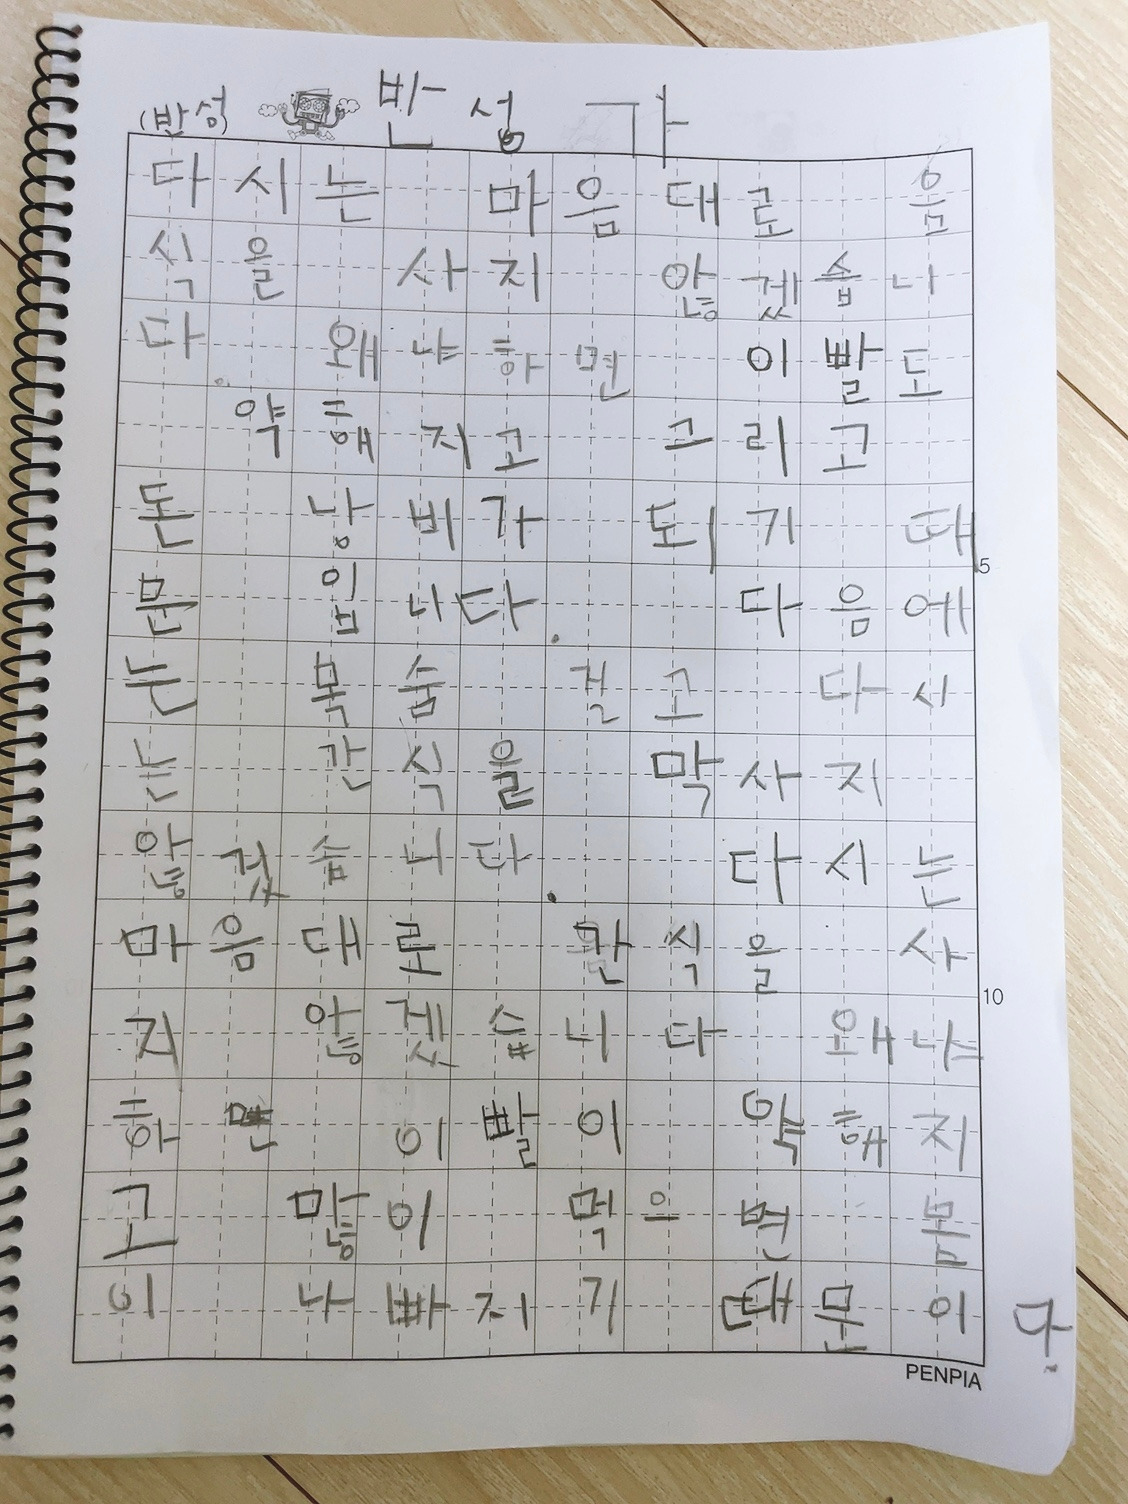 (반성) 반성 가
다시는 마음대로 음
식을 사지 않겠습니
다. 왜냐하면 이빨도
약해지고 그리고
돈 낭비가 되기 때
문 입니다. 다음에
는 목숨 걸고 다시
는 간식을 막사지
않겠습니다. 다시는
마음대로 간식을 사
지 않겠습니다 왜냐
하면 이빨이 약해지
고 많이 먹으면 몸
이 나빠지기 때문이다.
5
10
PENPIA